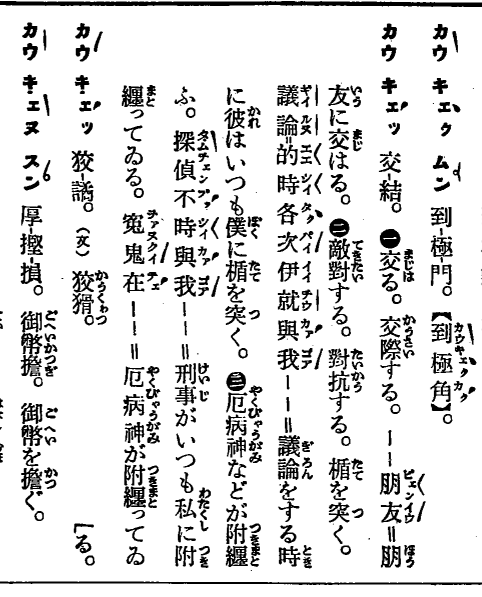 カウ キェㇰ ムン 到-極-門。【到極角】。
カウ キェッ 交-結。㊀交る。交際する。——朋友=朋
友に交はる。㊁敵對する。對抗する。楯を突く。
議論的時各次伊就與我——=議論をする時
に彼はいつも僕に楯を突く。㊂厄病神などが附纒
ふ。探偵不時與我——=刑事がいつも私に附
纒ってゐる。寃鬼在——=厄病神が附纒ってゐ
[る。
カウ キェッ 狡-譎。(文)狡猾。
カウ キェヌ スン 厚-摼-損。御幣擔。御幣を擔ぐ。